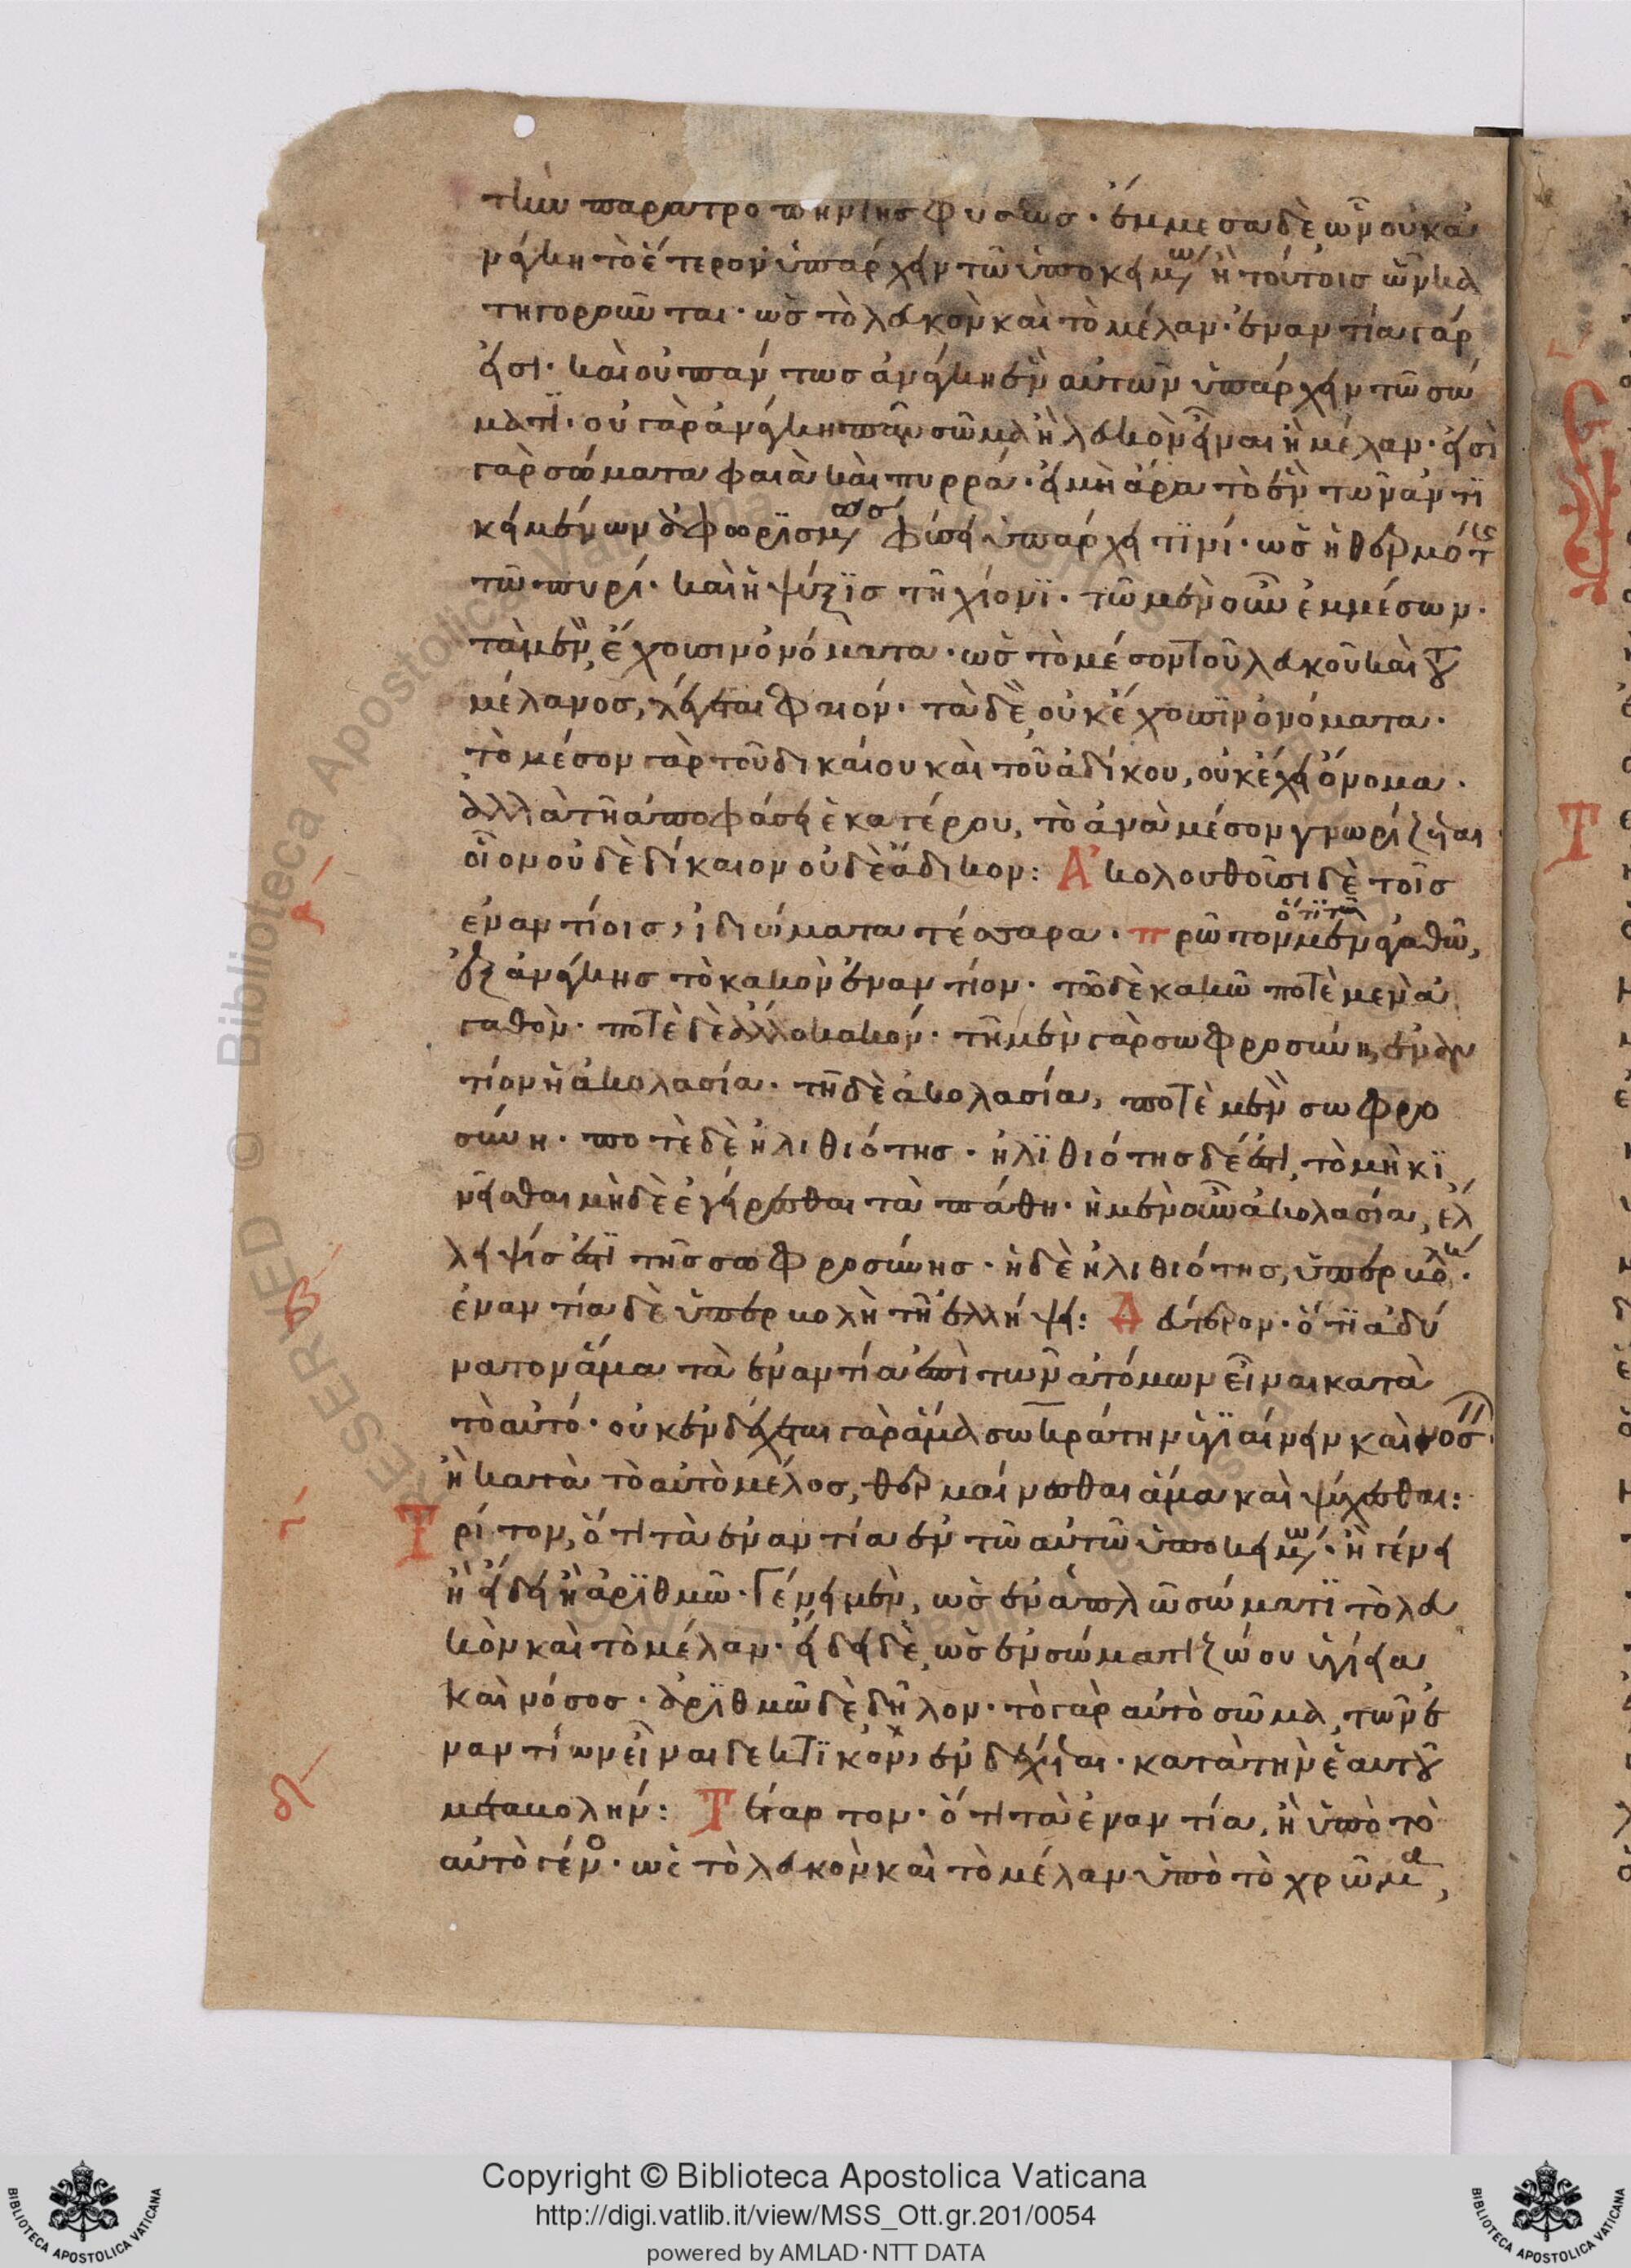 την παρατροπὴν τῆς φύσεως· ἔμμεσα δὲ ὧν οὐκ ἀ
νάγκη τὸ ἕτερον ὑπάρχειν τῶ ὑποκειμένω ἢ τούτοις ὧν κα
τηγοροῦνται· ὡς τὸ λευκὸν καὶ τὸ μέλαν· ἐναντία γάρ
εἰσι· καὶ οὐ πάντως ἀνάγκη ἓν αὐτῶν ὑπάρχειν τῶ σώ
ματι· οὐ γὰρ ἀνάγκη πᾶν σῶμα ἢ λευκὸν εἶναι ἢ μέλαν· εἰσὶ
γὰρ σώματα φαιὰ καὶ πυρρά· εἰ μὴ ἄρα τὸ ἓν τῶν ἀντι
κειμένων ἀφωρισμένως φύσει ὑπάρχει τινί· ὡς ἡ θερμότης
τῶ πυρί· καὶ ἡ ψύξις τῆ χιόνι· τῶν μὲν οὖν ἐμμέσων·
τὰ μὲν ἔχουσιν ὀνόματα· ὡς τὸ μέσον τοῦ λευκοῦ καὶ τοῦ
μέλανος, λέγεται φαιόν· τὰ δὲ οὐκ ἔχουσιν ὀνόματα·
τὸ μέσον γὰρ τοῦ δικαίου καὶ τοῦ ἀδίκου, οὐκ ἔχει ὄνομα·
ἀλλὰ τῆ ἀποφάσει ἑκατέρου, τὸ ἀνὰ μέσον γνωρίζεται
οἷον οὐδὲ δίκαιον οὐδὲ ἄδικον: Ἀκολουθοῦσι δὲ τοῖς
ἐναντίοις, ἰδιώματα τέσσαρα· πρῶτον μὲν ὅτι τῶ ἀγαθῶ,
ἐξ ἀνάγκης τὸ κακὸν ἐναντίον· τῶ δὲ κακῶ ποτὲ μὲν ἀ
γαθὸν· ποτὲ δὲ ἄλλο κακόν· τῆ μὲν γὰρ σωφροσύνη, ἐναν
τίον ἡ ἀκολασία· τῆ δὲ ἀκολασία, ποτὲ μὲν σωφρο
σύνη· ποτὲ δὲ ἠλιθιότης· ἠλιθιότης δέ ἐστι, τὸ μὴ κι
νεῖσθαι μὴδὲ ἐγείρεσθαι τὰ πάθη· ἡ μὲν οὖν ἀκολασία, ἔλ
λειψίς ἐστι τῆς σωφροσύνης· ἡ δὲ ἠλιθιότης, ὑπερβολή·
ἐναντία δὲ ὑπερβολὴ τῆ ἐλλείψει: Δεύτερον· ὅτι ἀδύ
νατον ἅμα τὰ ἐναντία ἐπὶ τῶν ἀτόμων εἶναι κατὰ
τὸ αὐτό· οὐκ ἐνδέχεται γὰρ ἅμα σωκράτην ὑγιαίνειν καὶ νοσεῖν·
ἢ κατὰ τὸ αὐτὸ μέλος, θερμαίνεσθαι ἅμα καὶ ψύχεσθαι:
Τρίτον, ὅτι τὰ ἐναντία ἐν τῶ αὐτῶ ὑποκειμένω· ἢ γένει
ἢ εἴδει ἢ ἀριθμῶ· Γένει μὲν, ὡς ἐν ἁπλῶ σώματι τὸ λευ
κὸν καὶ τὸ μέλαν· εἴδει δὲ, ὡς ἐν σώματι ζώου ὑγίεια
καὶ νόσος· ἀριθμῶ δὲ δῆλον· τὸ γὰρ αὐτὸ σῶμα, τῶν ἐ
ναντίων εἶναι δεκτικὸν, ἐνδέχεται· κατὰ τὴν ἑαυτοῦ
μεταβολήν: Τέταρτον· ὅτι τὰ ἐναντία, ἢ ὑπὸ τὸ
αὐτὸ γένος· ὡς τὸ λευκὸν καὶ τὸ μέλαν ὑπὸ τὸ χρῶμα,
α
β
γ
δ
Copyright © Biblioteca Apostolica Vaticana
http://digi.vatlib.it/view/MSS_Ott.gr.201/0054
powered by AMLAD·NTT DATA
BIBLIOTECA APOSTOLICA VATICANA
BIBLIOTECA APOSTOLICA VATICANA